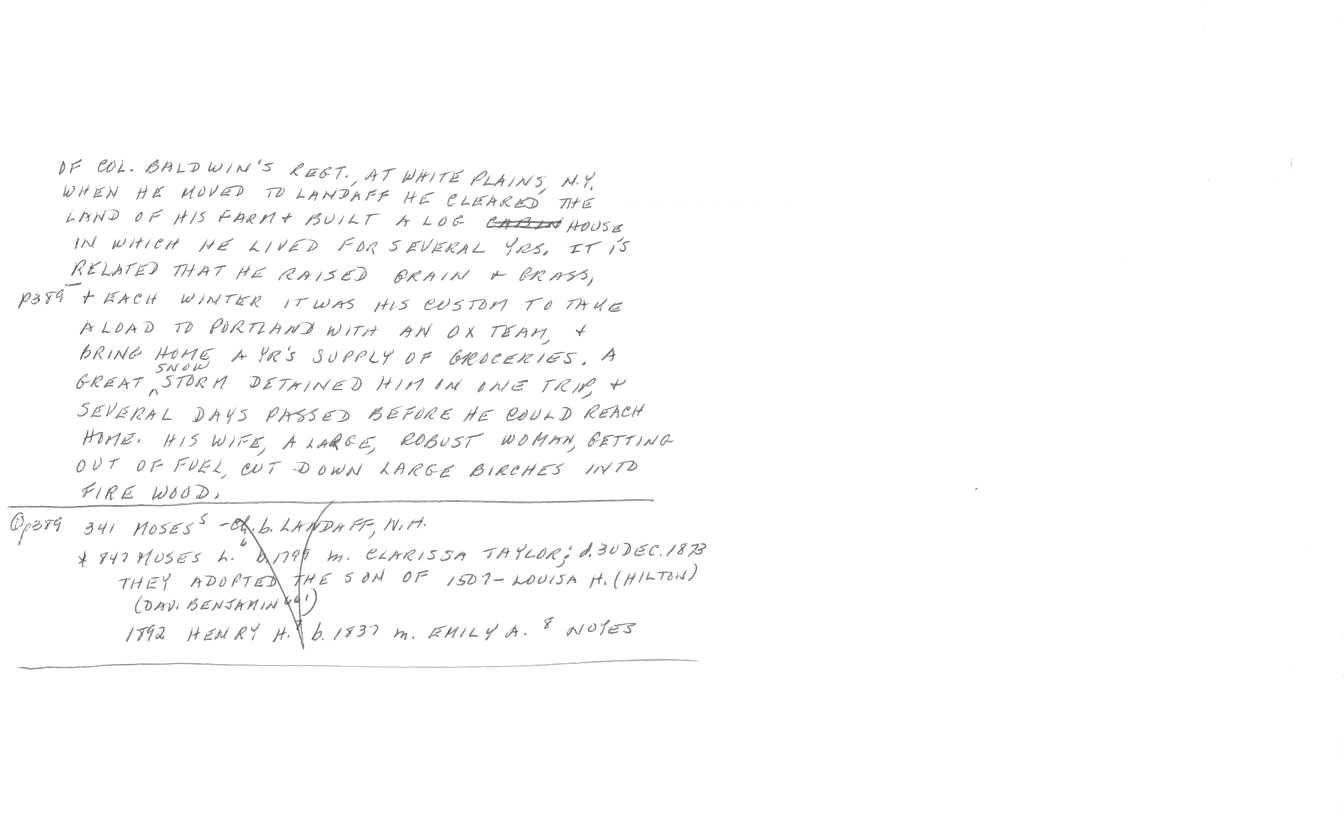 OF COL. BALDWIN'S REGT., AT WHITE PLAINS, N.Y.
WHEN HE MOVED TO LANDAFF HE CLEARED THE
LAND OF HIS FARM + BUILT A LOG CABIN HOUSE
IN WHICH HE LIVED FOR SEVERAL YRS. IT IS
RELATED THAT HE RAISED GRAIN + GRASS,
p389 + EACH WINTER IT WAS HIS CUSTOM TO TAKE
A LOAD TO PORTLAND WITH AN OX TEAM, +
BRING HOME A YR'S SUPPLY OF GROCERIES. A
GREAT SNOW STORM DETAINED HIM ON ONE TRIP, +
SEVERAL DAYS PASSED BEFORE HE COULD REACH
HOME. HIS WIFE, A LARGE, ROBUST WOMAN, GETTING
OUT OF FUEL, CUT DOWN LARGE BIRCHES INTO
FIRE WOOD.
p389 341 MOSES⁵ - Ch. b. LANDAFF, N.H.
* 847 MOSES H.⁶ b. 1798 m. CLARISSA TAYLOR; d. 30 DEC. 1873
THEY ADOPTED THE SON OF 1507 - LOUISA H. (HILTON)
(DAU. BENJAMIN 441)
1892 HENRY H.⁸ b. 1837 m. EMILY A. ⁸ NOYES